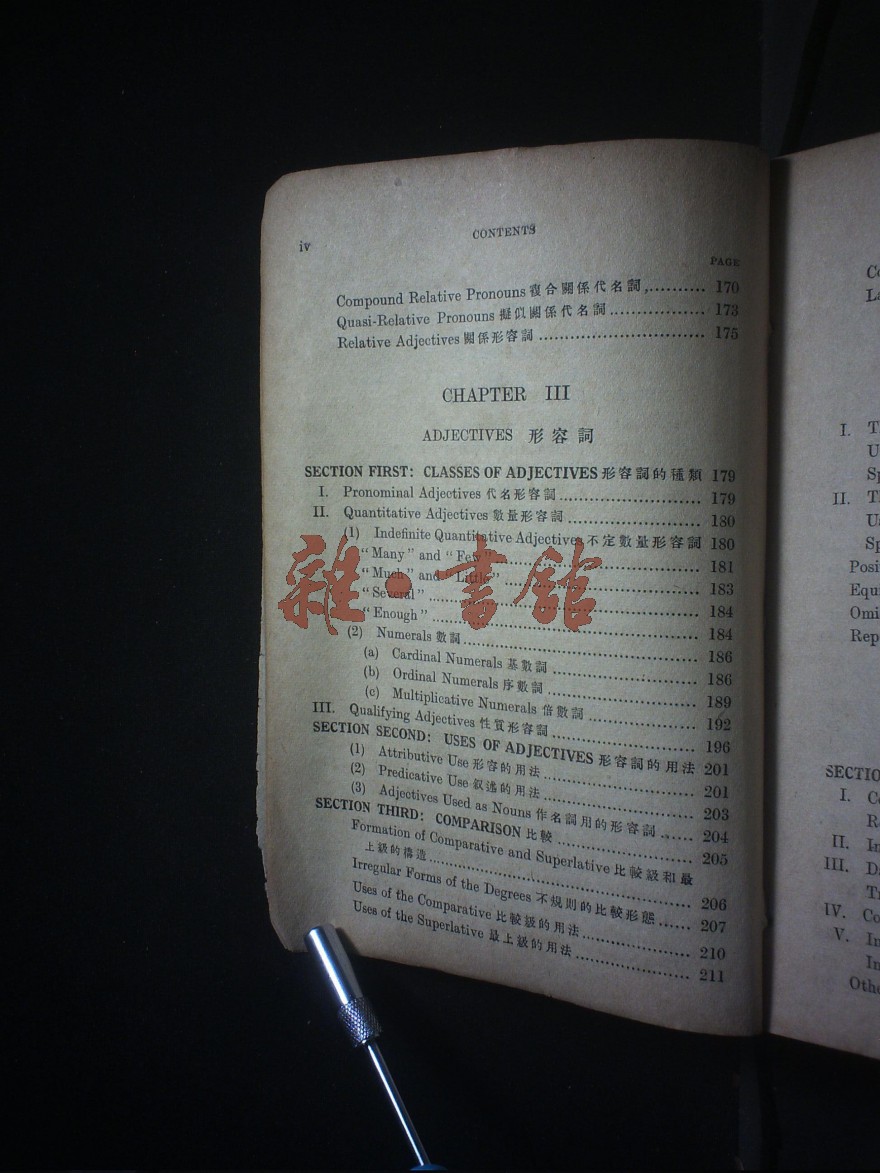 iv
CONTENTS
PAGE
Compound Relative Pronouns 複合關係代名詞,.......... 170
Quasi-Relative Pronouns 擬似關係代名詞 ................. 173
Relative Adjectives 關係形容詞 .............................. 175
CHAPTER III
ADJECTIVES 形容詞
SECTION FIRST: CLASSES OF ADJECTIVES 形容詞的種類 179
I. Pronominal Adjectives 代名形容詞 ......................... 179
II. Quantitative Adjectives 數量形容詞 ........................ 180
(1) Indefinite Quantitative Adjectives 不定數量形容詞 180
"Many" and "Few" ................................... 181
"Much" and "Little" ................................... 183
"Several" ................................................ 184
"Enough" ................................................ 184
(2) Numerals 數詞 .......................................... 186
(a) Cardinal Numerals 基數詞 ........................... 186
(b) Ordinal Numerals 序數詞 ........................... 189
(c) Multiplicative Numerals 倍數詞 .................... 192
III. Qualifying Adjectives 性質形容詞 ......................... 196
SECTION SECOND: USES OF ADJECTIVES 形容詞的用法 201
(1) Attributive Use 形容的用法 ........................... 201
(2) Predicative Use 叙述的用法 ........................... 203
(3) Adjectives Used as Nouns 作名詞用的形容詞 ...... 204
SECTION THIRD: COMPARISON 比較 ........................ 205
Formation of Comparative and Superlative 比較級和最
上級的構造 ................................................ 206
Irregular Forms of the Degrees 不規則的比較形態 ...... 207
Uses of the Comparative 比較級的用法 .................... 210
Uses of the Superlative 最上級的用法 ..................... 211
雜·書館
I.
II.
Posi
Equi
Omi
Rep
SECTIO
I. Co
II. In
III. D
IV. Co
V. In
In
Othe